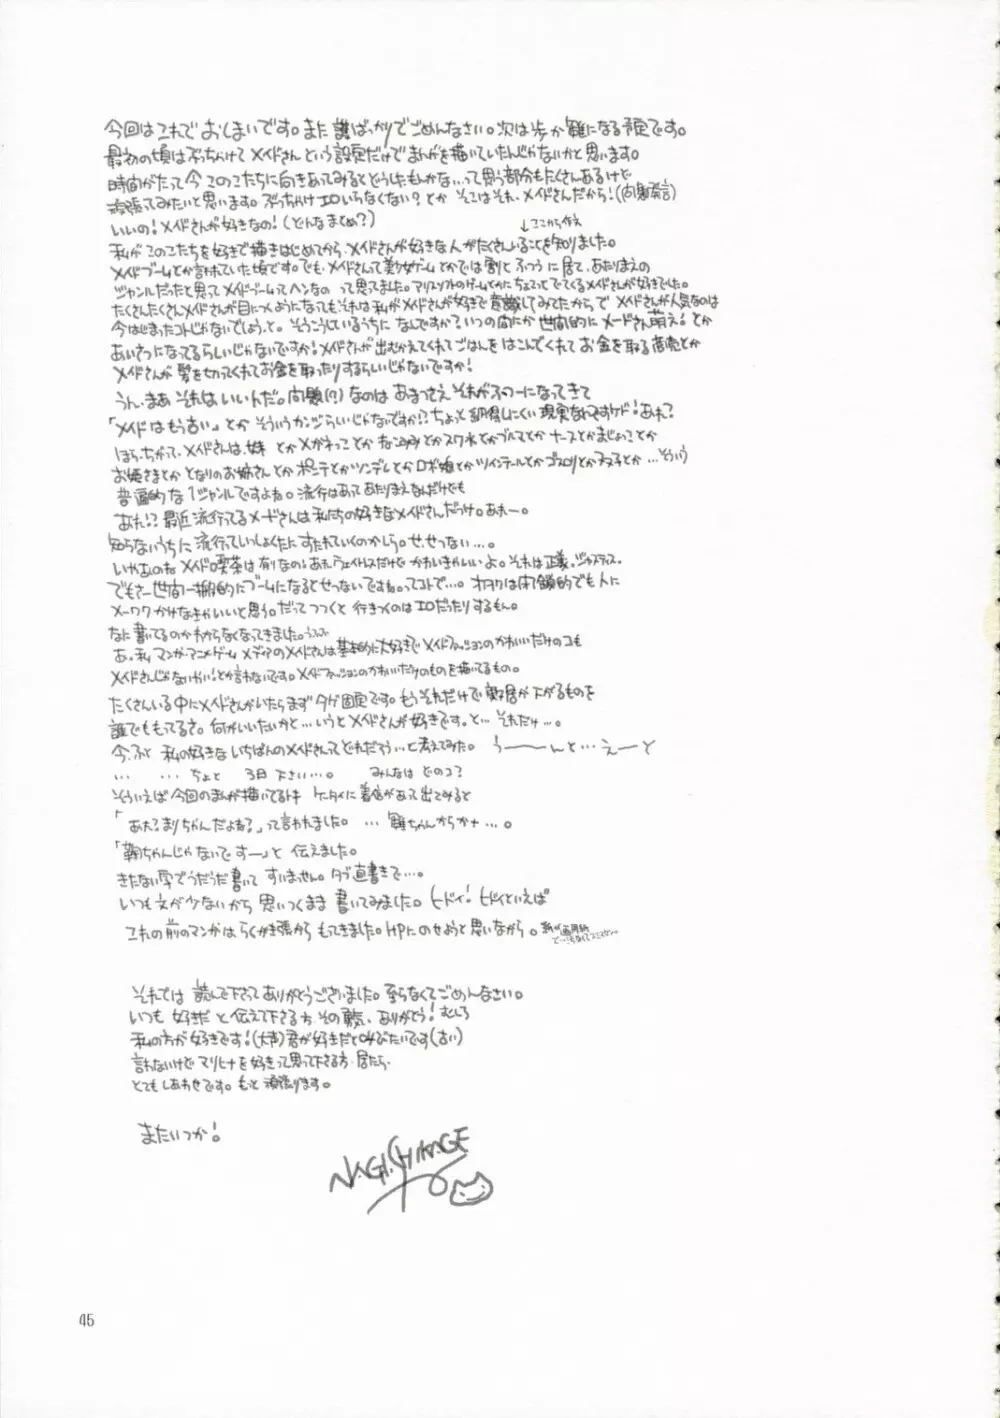 今回はこれでおしまいです。また誰ばっかりでごめんなさい。次は歩か雛になる予定です。
最初の頃はぶっちゃけてメイドさんという設定だけでまんがを描いていたんじゃないかと思います。
時間がたって今このこたちに向きあってみるとどうしたもんかな…って思う部分もたくさんあるけど
頑張ってみたいと思います。ぶっちゃけエロいらなくない?とか そこはそれ、メイドさんだから!(問題発言)
いいの!メイドさんが好きなの!(どんなまとめ?)
↓ここから作文
私がこのこたちを好きで描きはじめてから、メイドさんが好きな人がたくさんいることを知りました。
メイドブームとか言われていた頃です。でも、メイドさんて美少女ゲームとかでは割とふつうに居て、あたりまえの
ジャンルだったと思ってメイドブームってヘンなのって思ってました。アリスソフトのゲームとかにちょこっとでてくるメイドさんが好きでした。
たくさんたくさんメイドさんが目につくようになっても、それは私がメイドさんが好きで意識してみてたからで メイドさんが人気なのは
今はじまったコトじゃないでしょう。と。そうこうしているうちに なんですか?いつの間にか世間的にメードさん萌え!とか
あいさつになってるらしいじゃないですか!メイドさんが出むかえてくれてごはんをはこんでくれてお金を取る商売とか
メイドさんが髪を切ってくれてお金を取ったりするらしいじゃないですか!
うん、まあ それはいいんだ。問題(?)なのは あまつさえ それがふつーになってきて
「メイドはもう古い」とか そういうカンジらしいじゃないですか!?ちょっと納得しにくい現実なんですケド!あれ?
ほら、ちがって、メイドさんは、妹とかメガネっことかネコミミとかスク水とかブルマとかナースとかまじょっことか
お姫さまとか となりのお姉さんとか ポニテとかツンデレとか ロボ娘とかツインテールとかゴスロリとか…そういう
普遍的な1ジャンルですよね。流行はあってあたりまえなんだけでも
あれ!?最近流行ってるメードさんは私たちの好きなメイドさんだっけ。あれー。
知らないうちに流行っていっしょくたにすたれていくのかしら。せ、せつない…。
いやあのね メイド喫茶は有りなの!あれウェイトレスだけでかわいきゃいいよ。それは正義。ジャスティス。
でもさー世間一般的にブームになるとせつないですね。ってコトで…。オタクは閉鎖的でも人に
メーワクかけなきゃいいと思う。だってつづくと行きつくのはエロだったりするもん。
なに書いてるのかわからなくなってきました。うふふ
あ、私 マンガ・アニメ・ゲーム メディアのメイドさんは基本的に大好きで メイドファッションのかわいいだけのコも
メイドさんじゃないやい!とか言わないです。メイドファッションのかわいいだけのものを描いてるもの。
たくさんいる中にメイドさんがいたらまずタゲ固定です。もうそれだけで敷居が下がるものを
誰でももってるさ。何がいいたいかと…いうとメイドさんが好きです。と…それだけ…。
今、ふと 私の好きないちばんのメイドさんってどれだろう…と考えてみた。 うーーーんと…えーと
… … ちょと 3日下さい…。 みんなは どのコ?
そういえば今回のまんが描いてるトキ ケータイに着信があって出てみると
「あれ?まりちゃんだよね?」って言われました。… 雛ちゃんからか…。
「鞠ちゃんじゃないですー」と 伝えました。
きたない字でうだうだ書いて すいません。タブ直書きで…。
いつも文が少ないから 思いつくまま 書いてみました。ヒドイ!ヒドイといえば
これの前のマンガは らくがき張から もってきました。HPにのせようと思いながら。
それでは 読んで下さってありがとうございました。至らなくてごめんなさい。
いつも 好きだ と伝えて下さる方、その勇気、ありがとう!むしろ
私の方が好きです!(大声)君が好きだと叫びたいです(古い)
言わないけどマリヒナを好きって思って下さる方 居たら、
とてもしあわせです。もっと頑張ります。
またいつか!
NAGI.CHIKAGE
45